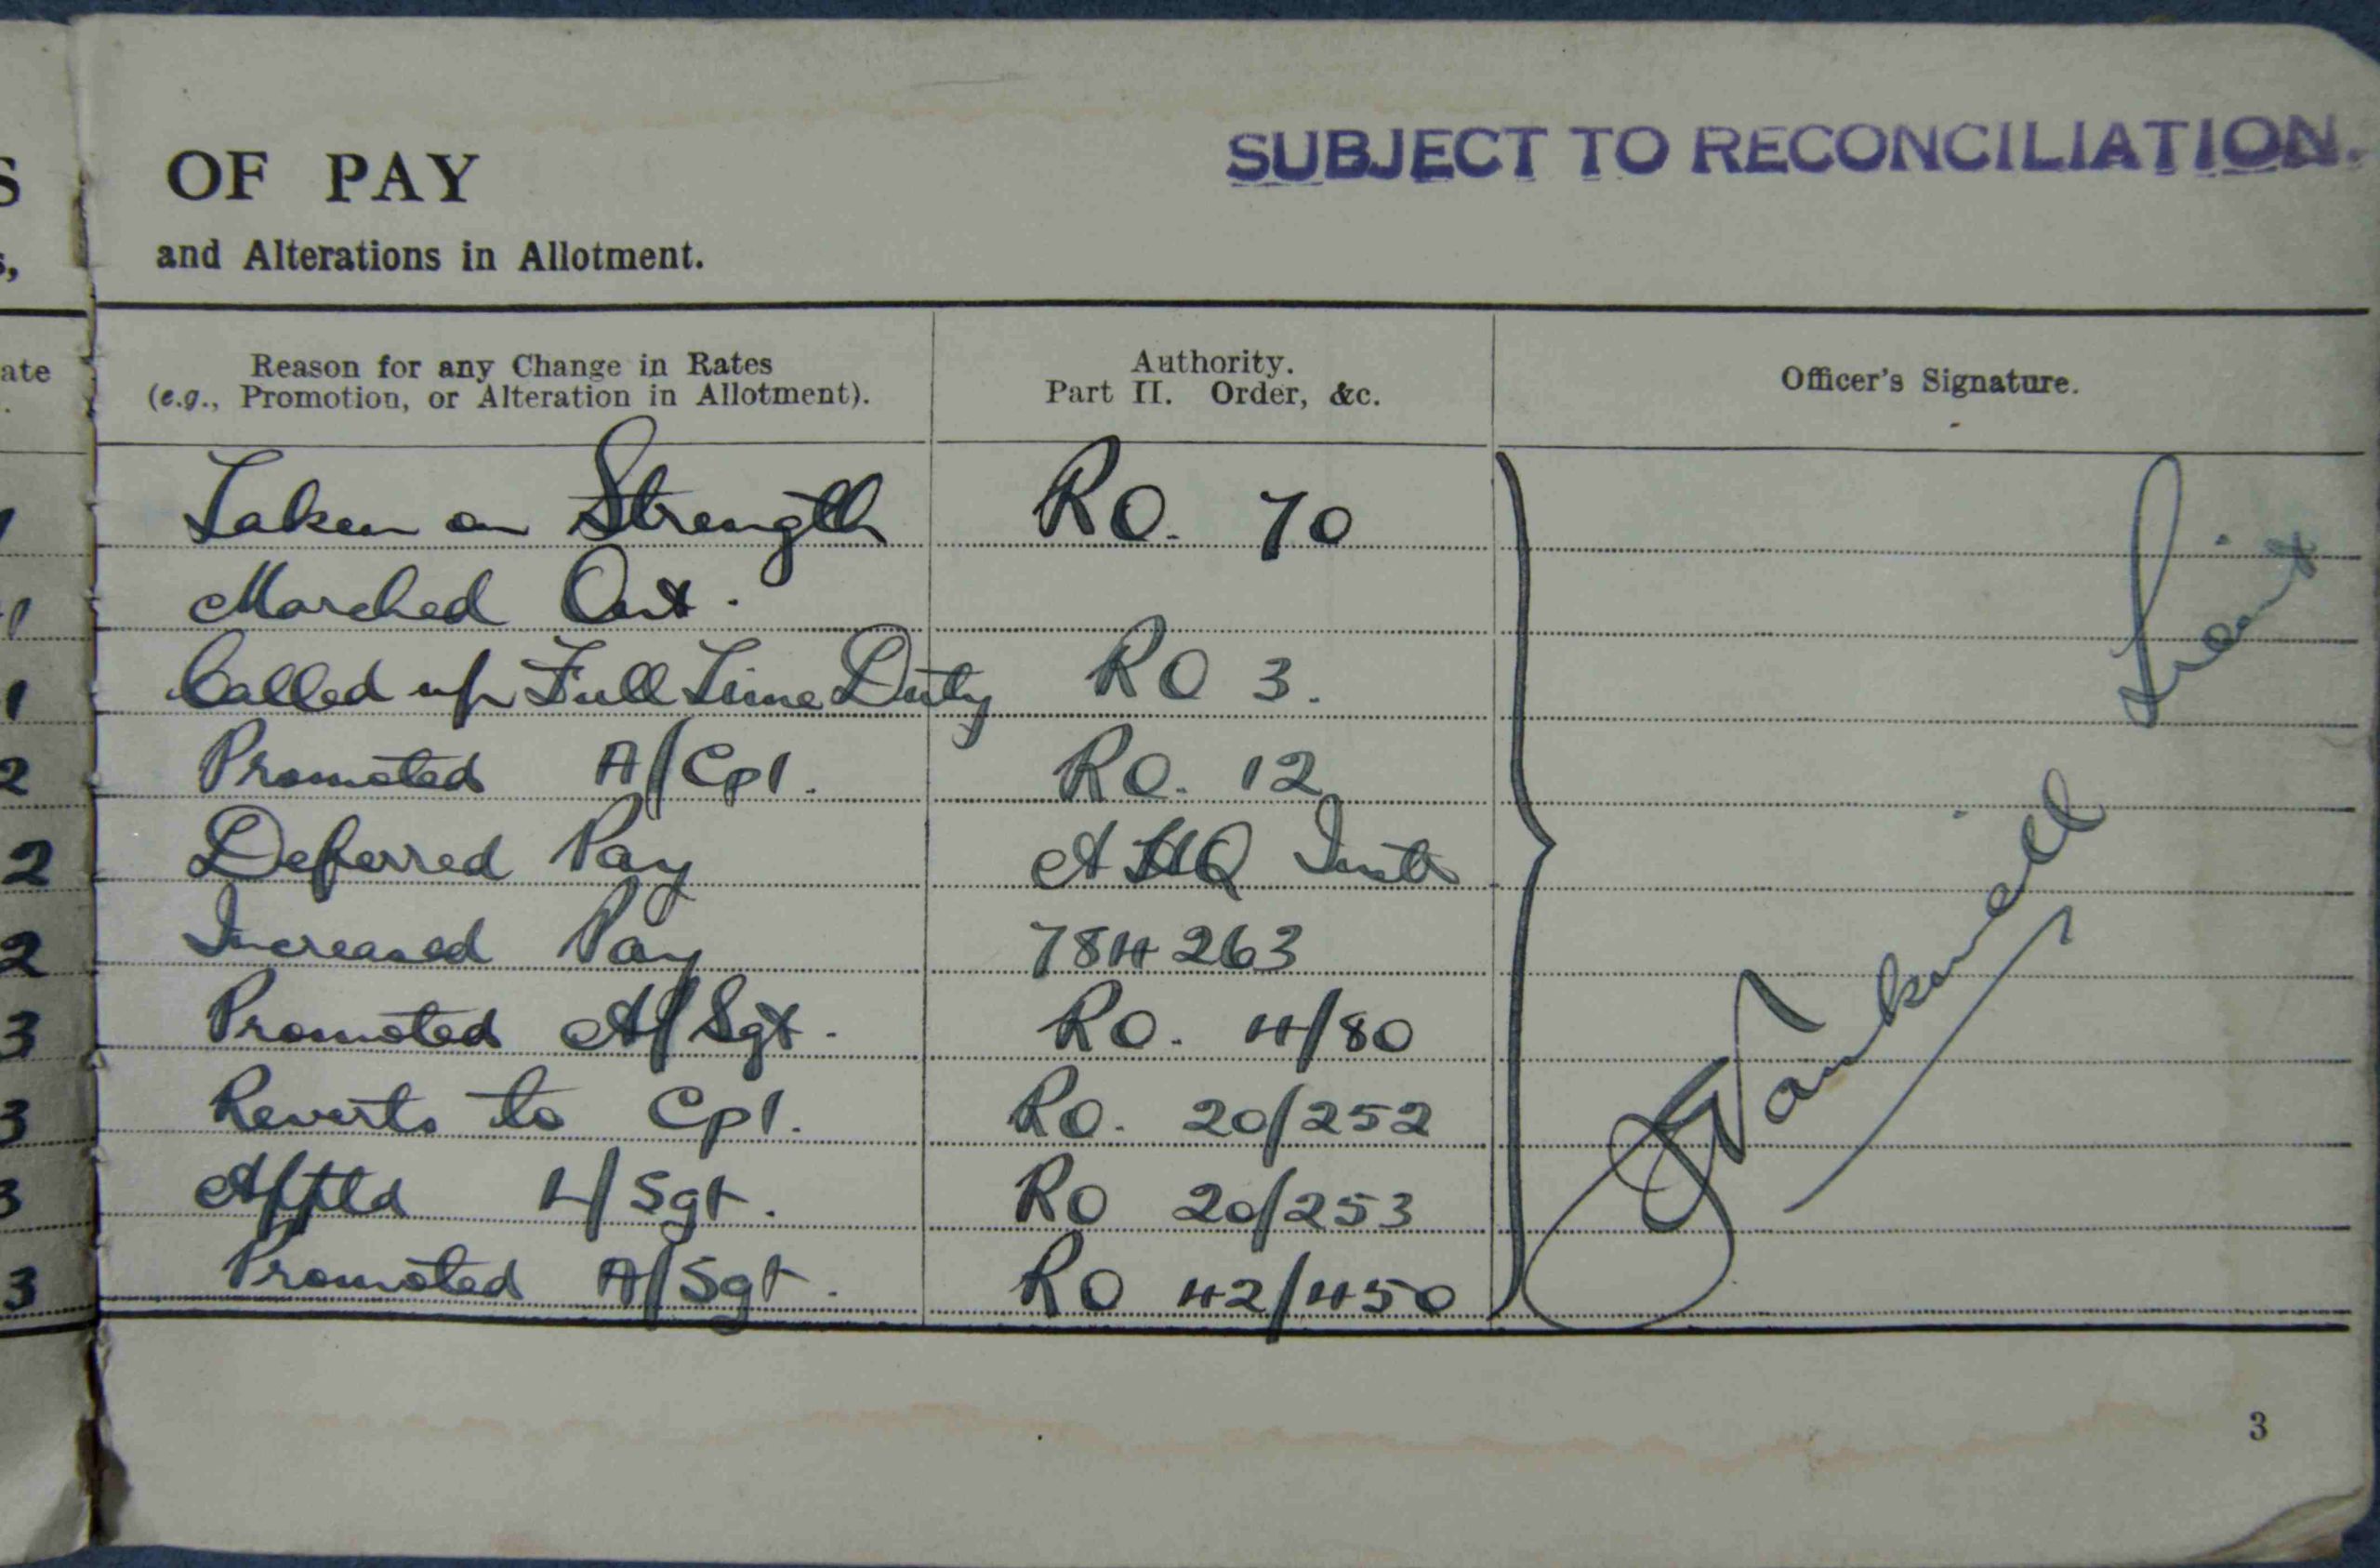 S OF PAY SUBJECT TO RECONCILIATION.
s, and Alterations in Allotment.
ate Reason for any Change in Rates Authority. Officer's Signature.
(e.g., Promotion, or Alteration in Allotment). Part II. Order, &c.
1 Taken on Strength RO. 70
1 Marched Out.
1 Called up Full Time Duty RO 3.
2 Promoted A/Cpl. RO. 12
2 Deferred Pay AHQ Instr
2 Increased Pay 784263
3 Promoted A/Sgt. RO. 4/80
3 Reverts to Cpl. RO. 20/252
3 Apptd L/Sgt. RO 20/253
3 Promoted A/Sgt. RO 42/450
Lieut
3